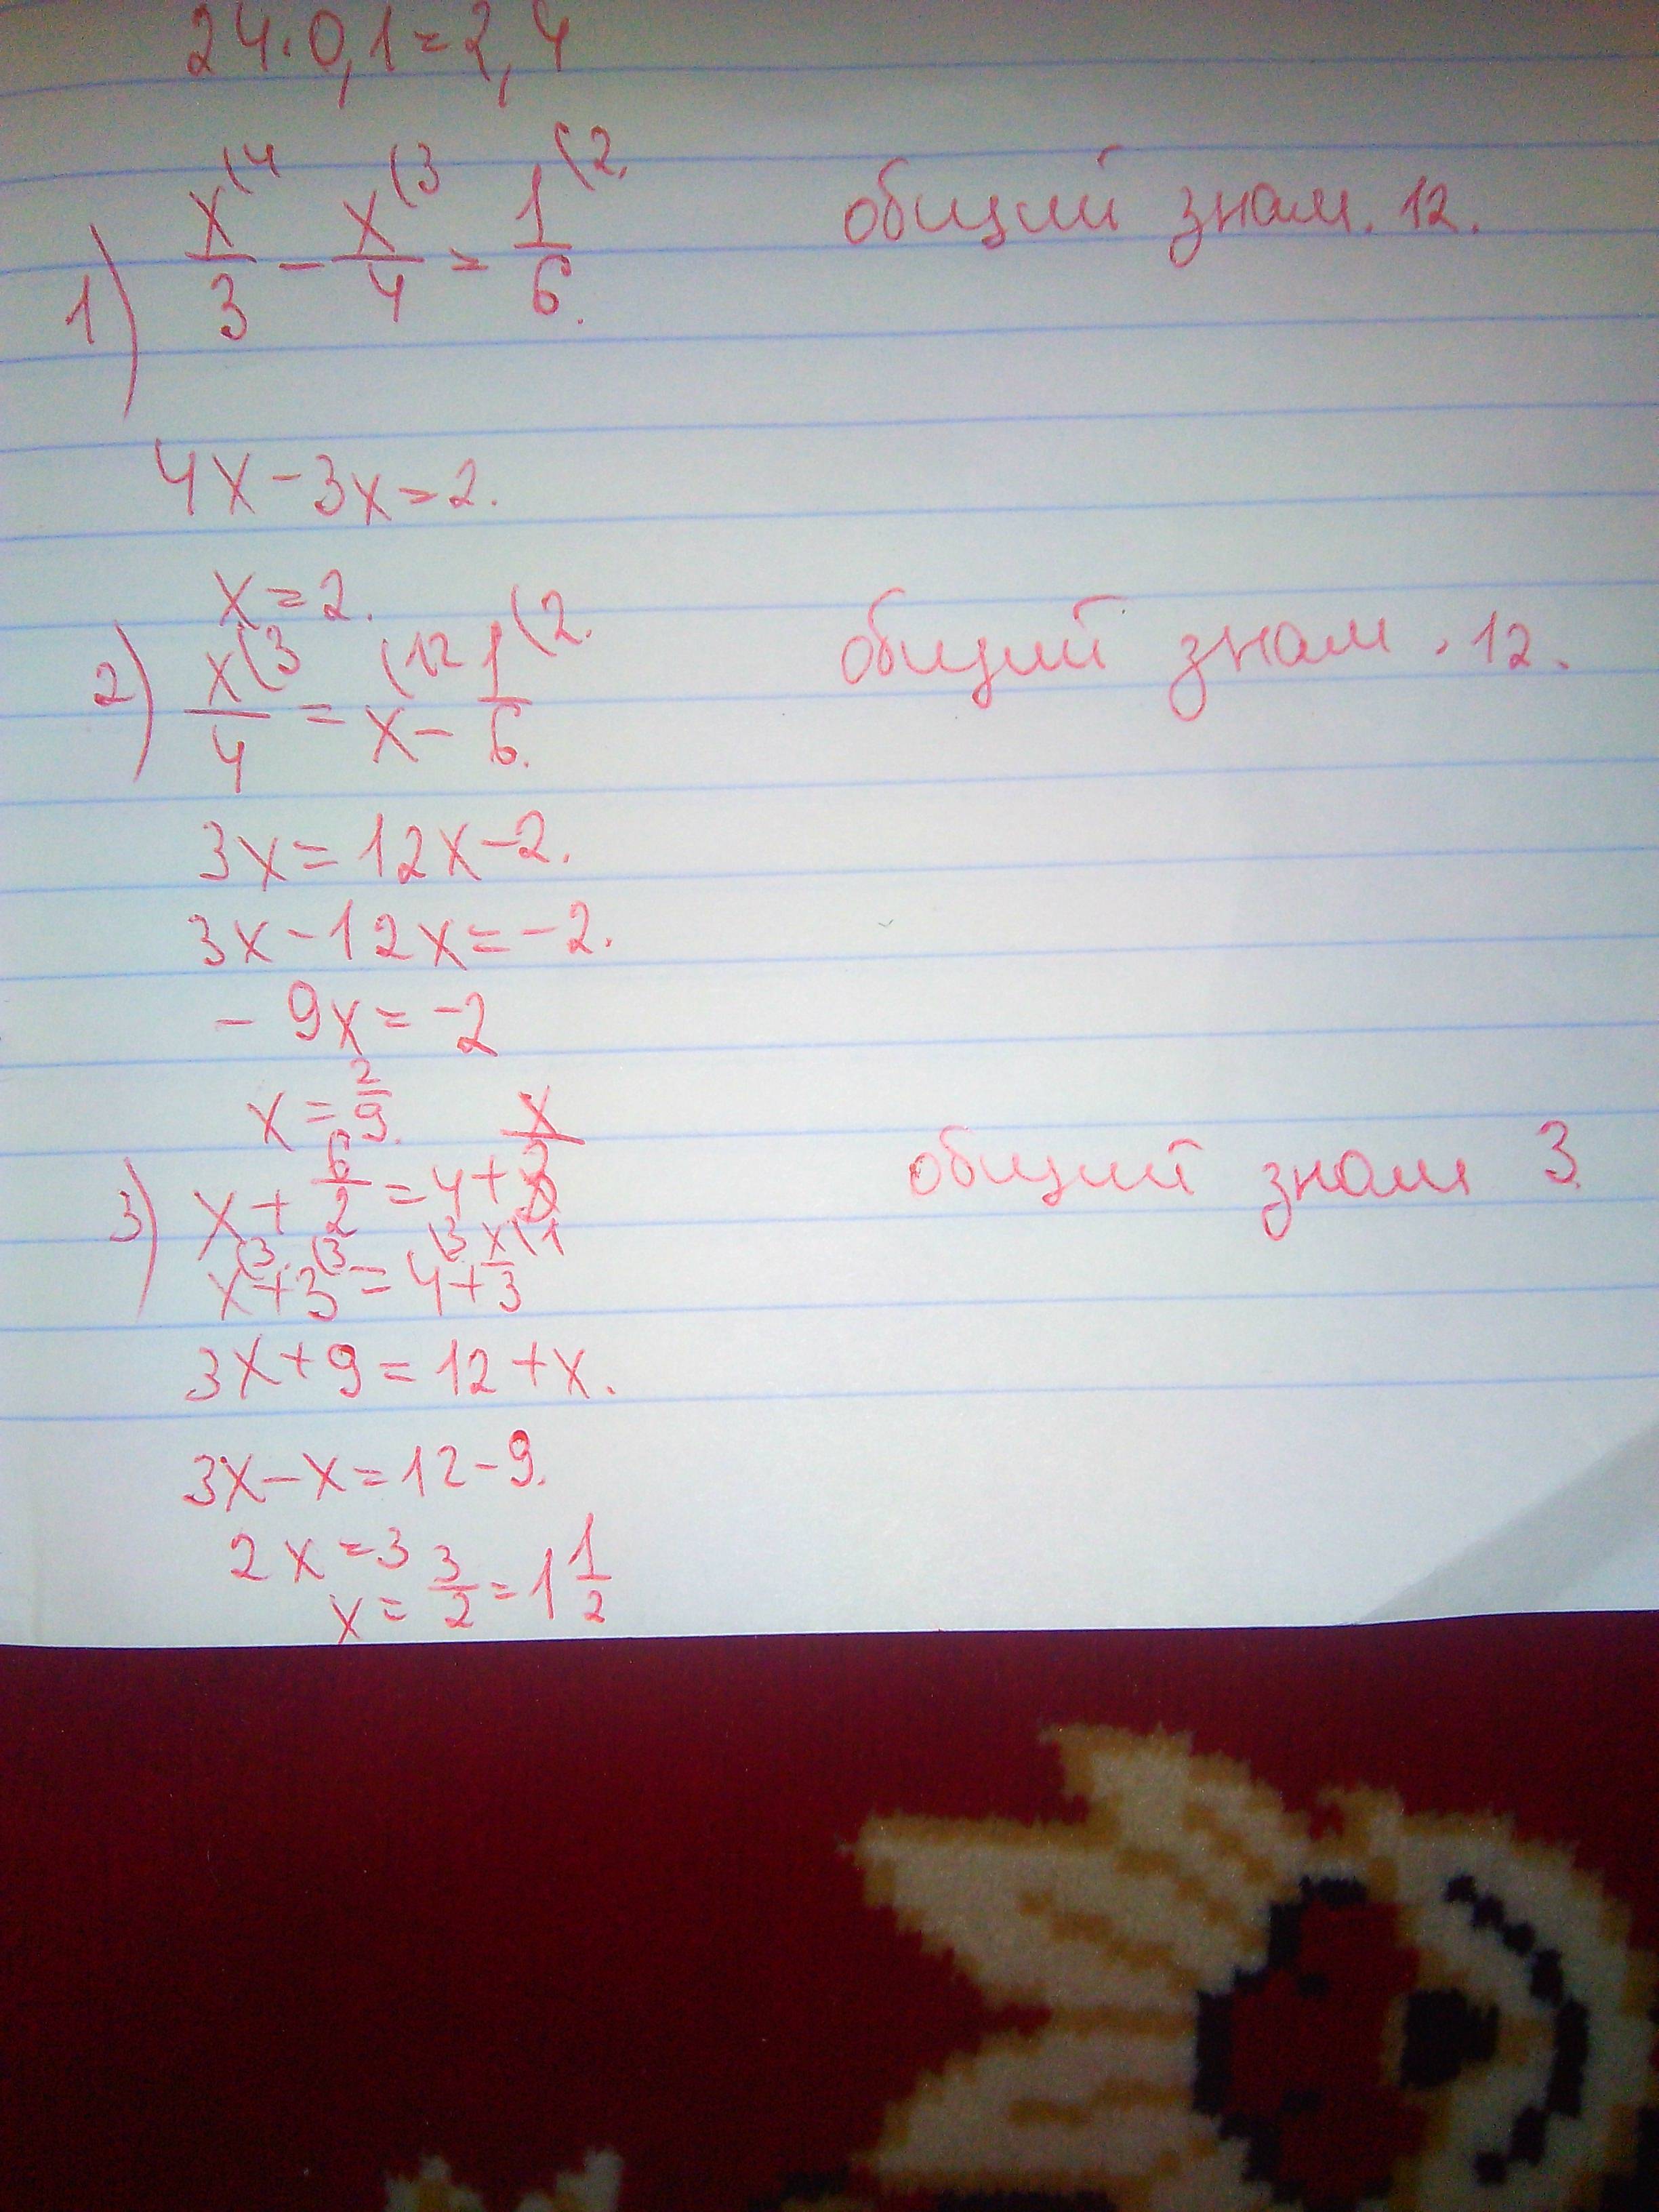 24·0,1=2,4
1) x(4/3 - x(3/4 = 1(2/6. общий знам. 12.
4x-3x=2.
x=2.
2) x(3/4 = (12 x - 1(2/6. общий знам. 12.
3x=12x-2.
3x-12x=-2.
- 9x=-2
x=2/9.
3) x+6/2=4+x/3 общий знам 3.
x(3+3(3=4(3+x(1/3
3x+9=12+x.
3x-x=12-9.
2x=3
x=3/2=1 1/2